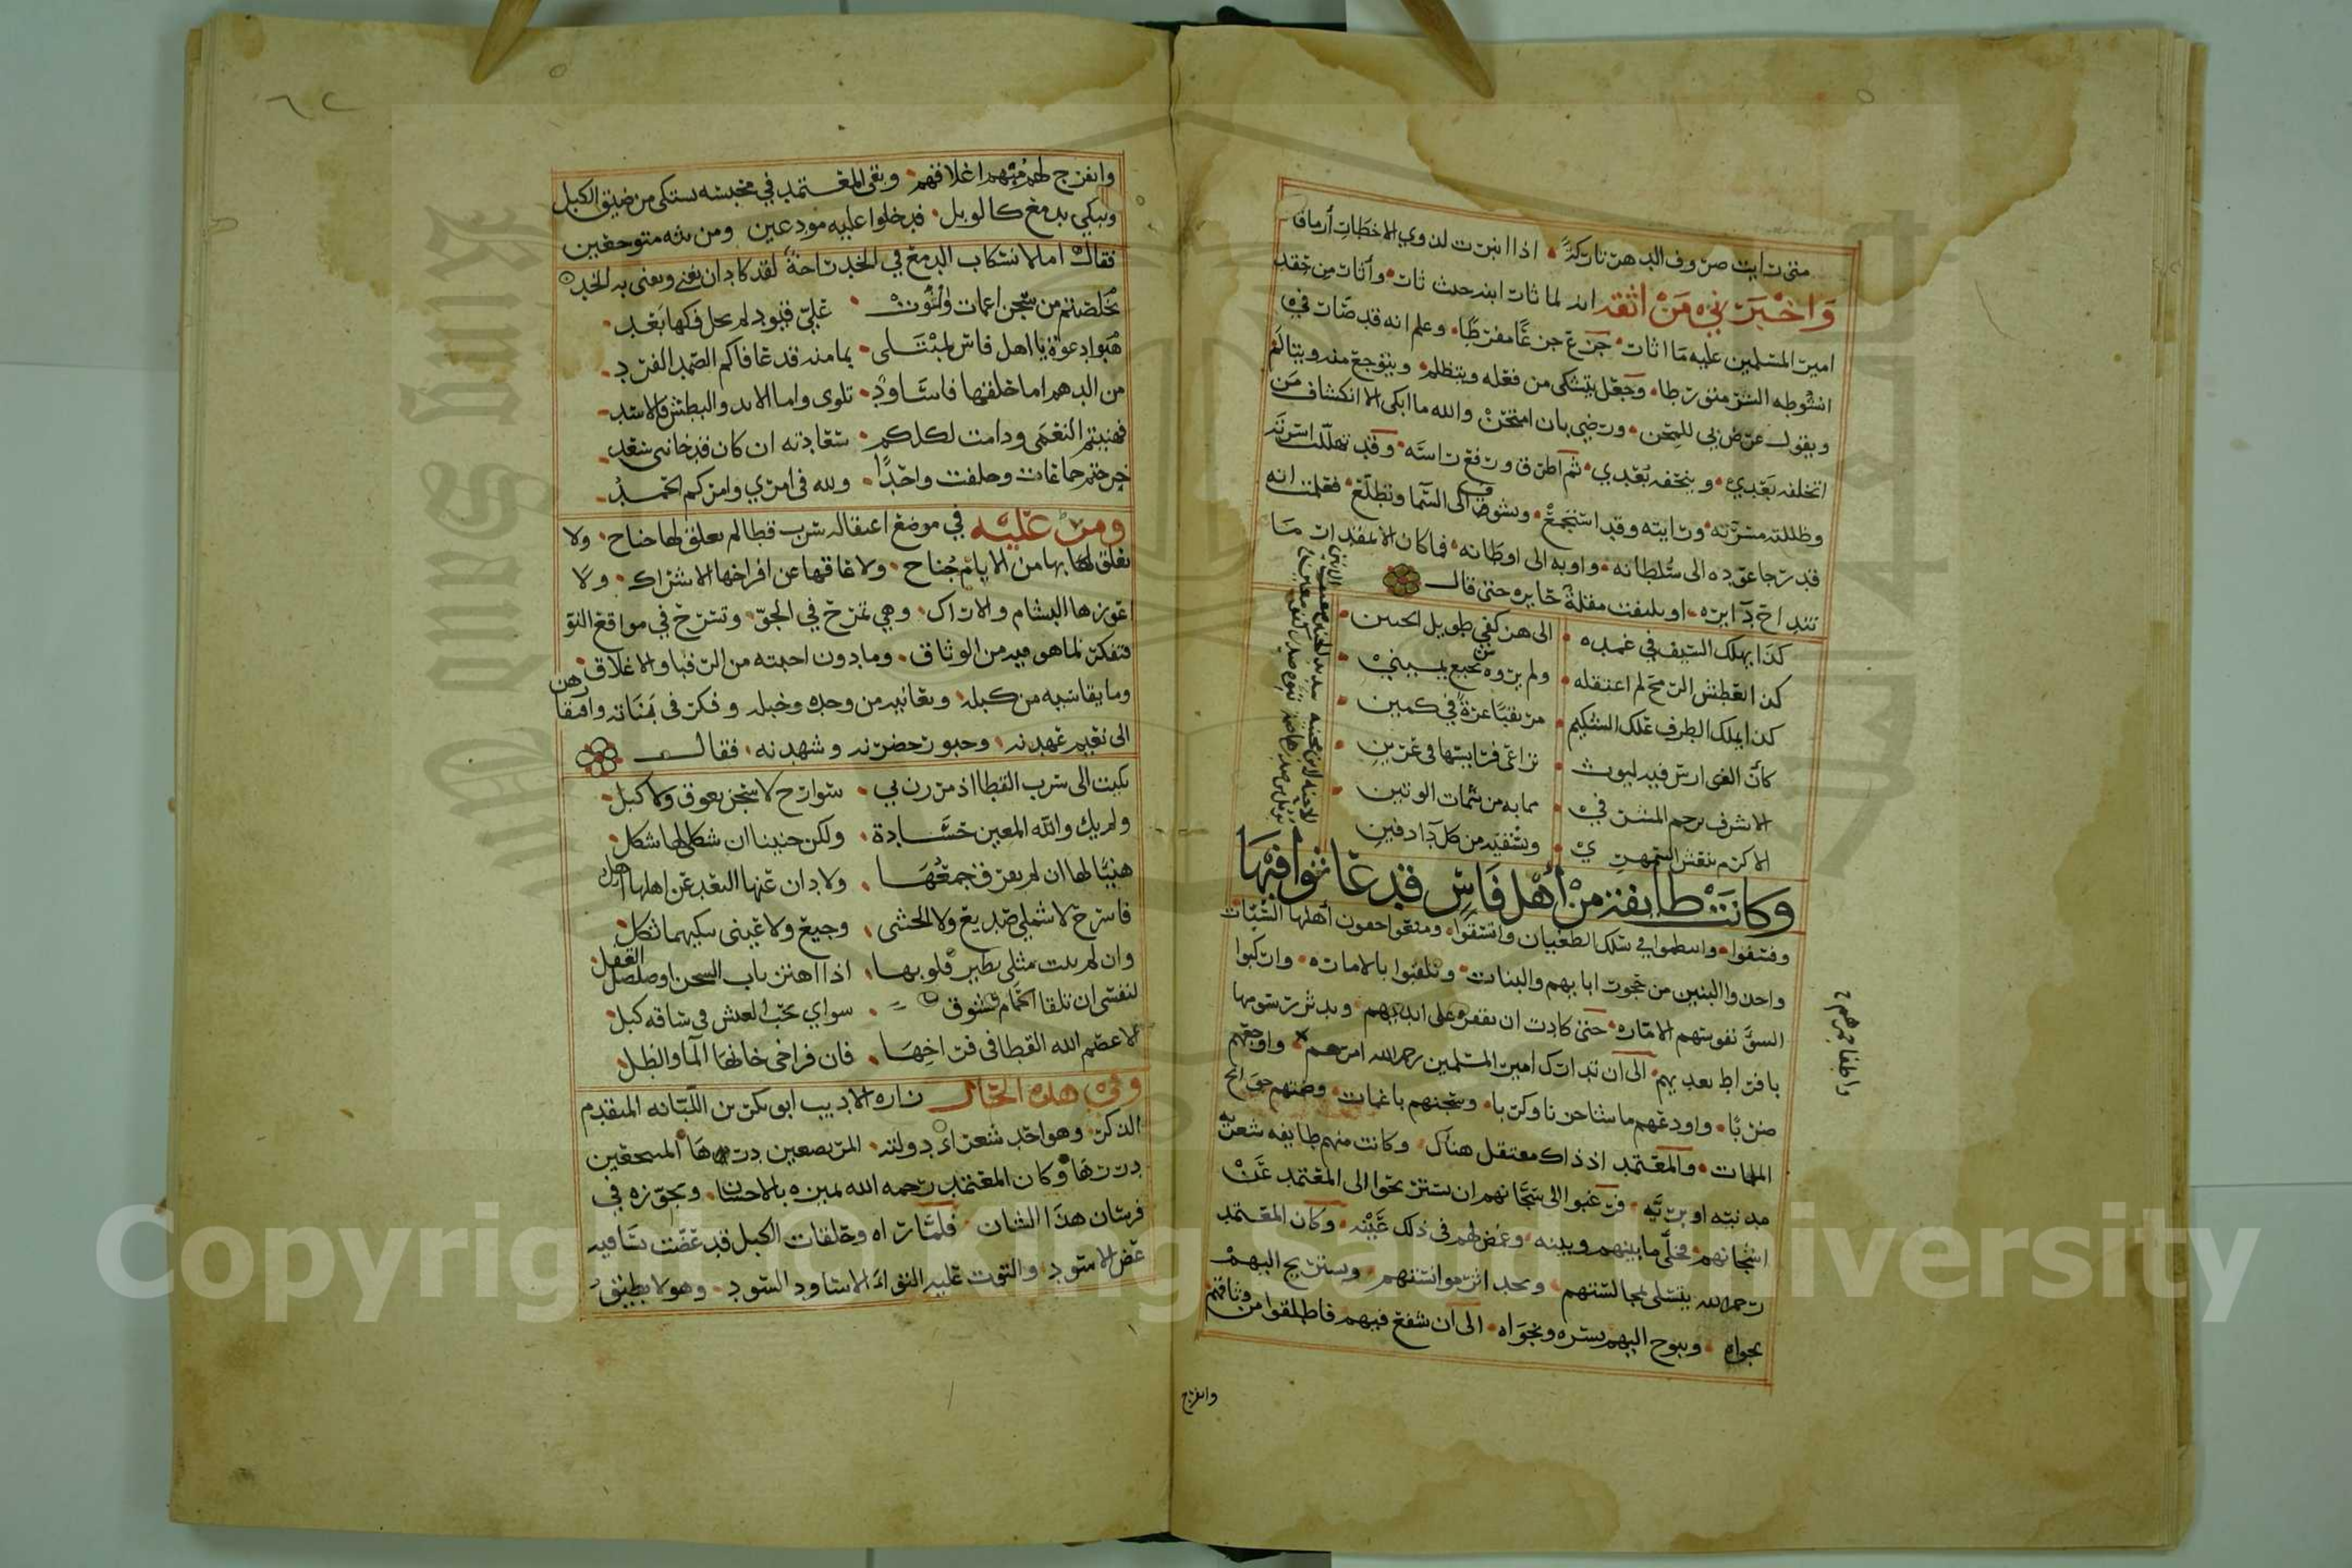 متى رايت صروف الدهر تاركةً اذا انبرت لذوي الاخطات أرماقا
وَاخْبَرَنِي مَنْ اثقه انه لما ثار ابنه حيث ثار وأثار من حقد
امير المسلمين عليه ما اثار جزع جزعًا مفرطًا وعلم انه قد صار في
انشوطه الشر متورطا وجعل يتشكى من فعله ويتظلم ويتوجع منه ويتالم
ويقول عرض بي للمحن ورضي بان امتحن والله ما ابكي الا انكشاف من
اتخلفه بعدي ويتحفه بعدي ثم اطرق ورفع راسه وقد تهللت اسرته
وظللته مسرته ورايته وقد استجمع وتشوف الى السما وتطلع فعلمت انه
قد رجا عوده الى سلطانه واوبه الى اوطانه فما كان الا بمقدار ما
تنداح دايره او يلتفت مقلة حايره حتى قال
كذا يهلك السيف في غمده الى هز كفي طويل الحنين
كذا يعطش الرمح لم اعتقله ولم تروه من نجيع يميني
كذا يملك الطرف علك الشكيم مرتقبًا غرةً في كمين
كأن الفوارس فيه ليوث تراعي فرايستها في عرين
الا شرف يرحم المشرفي مما به من شمات الوتين
الا كرم ينعش السمهري ويشفيه من كل دا دفين
الا حنه لابن محنيه شديد الحنين ضعيف الانين
يؤمل من صدرها ضمة تبوه صدر كفو معين
وكانت طايفة من أهل فاس قد عاثوا فيها
وفسقوا وانتظموا في سلك الطغيان واتسقوا ومنعوا جفون أهلها السنات
واخذوا البنين من حجور ابايهم والبنات وتلقبوا بالامارة واركبوا
السوَّ نفوسهم الامّاره حتى كادت ان تقفر على ايديهم وتدثر رسومها
بافراط تعديهم الى ان تدارك امير المسلمين رحمه الله امرهم واوجعهم
واطفا جمرهم
ضربًا واودعهم ما شا حزنا وكربا وسجنهم باغمات وضمهم جوانح
الملمات والمعتمد اذ ذاك معتقل هناك وكانت منهم طايفه شعريه
مذنبه او بريّه فرغبوا الى سجّانهم ان يستريحوا الى المعتمد عن
اشجانهم فخلّى ما بينهم وبينه وغمض لهم في ذلك عينه وكان المعتمد
رحمه الله يتسلى بمجالستهم ويجد اثر موانستهم ويستريح اليهم
بجواه ويبوح اليهم بسره ونجواه الى ان شفع فيهم فاطلقوا من وثاقهم
وانفرج
وانفرج لهم مبهم اغلاقهم وبقي المعتمد في محبسه يشتكي من ضيق الكبل
ويبكي بدمع كالوبل فدخلوا عليه مودعين ومن بثه متوجعين
فقال اما لانسكاب الدمع في الخد راحةٌ لقد كاد ان يفنى ويفنى به الخد
تخلصتم من سجن اغمات والتوت علي قيود لم يحل فكها بعد
هبوا دعوة يا اهل فاس لمبتلى بما منه قد عافاكم الصمد الفرد
من الدهم اما خلقها فاساود تلوى واما الايد والبطش فالاسد
فهنيتم النعمى ودامت لكلكم سعادته ان كان قد خانني سعد
خرجتم جماعات وخلفت واحدًا ولله في امري وامركم الحمد
ومر عليه في موضع اعتقاله سرب قطا لم يعلق لها جناح ولا
تعلق بها من الايام جُناح ولا عاقها عن افراخها الاشراك ولا
اعوزها البشام والاراك وهي تمرح في الجو وتسرح في مواقع النو
فتفكر لما هو فيه من الوثاق وما دون احبته من الرقبا والاغلاق
وما يقاسيه من كبله ويعانيه من وجده وخبله وفكر في بناته وافتقارهن
الى نعيم عهدنه وحبور حضرنه وشهدنه فقال
بكيت الى سرب القطا اذ مررن بي سوارح لا سجن يعوق ولا كبل
ولم يك والله المعين حسادة ولكن حنينا ان شكلي لها شكل
هنيًا لها ان لم يفرق جمعها ولا ذاق عنها البعد عن اهلها اهل
فاسرح لا شملي صديع ولا الحشى وجيع ولا عيني يبكيهما ثكل
وان لم تبت مثلي تطير قلوبها اذا اهتز باب السجن او صلصل القفل
لنفسي ان تلقا الحمام تشوف سواي يحب العيش في ساقه كبل
الا عصم الله القطا في فراخها فان فراخي خانها الما والظل
وفي هذه الحال زاره الاديب ابو بكر بن اللبانه المتقدم
الذكر وهو احد شعراء دولته المرتضعين درها المنتجعين
دررها وكان المعتمد رحمه الله يميزه بالاحسان ويجوزه في
فرسان هذا الشان فلما راه وحلقات الكبل قد عضت بساقيه
عض الاسود والتوت عليه التواء الاساود السود وهو لا يطيق